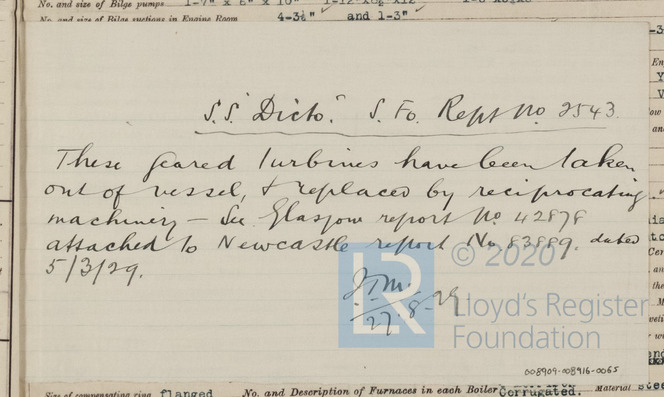 No. and size of Bilge pumps 1-7" x 6" x 10"
No. and size of Bilge suctions in Engine Room 4-3½" and 1-3"
S.S. "Dicto." S. Fo. Rept No. 2543.
These geared turbines have been taken
out of vessel, & replaced by reciprocating
machinery – See Glasgow report No. 42878
attached to Newcastle report No. 83889. dated
5/3/29.
27-8-29
© 2020
LR Lloyd's Register
Foundation
008909-008916-0065
Size of compensating ring flanged No. and Description of Furnaces in each Boiler Corrugated. Material stee